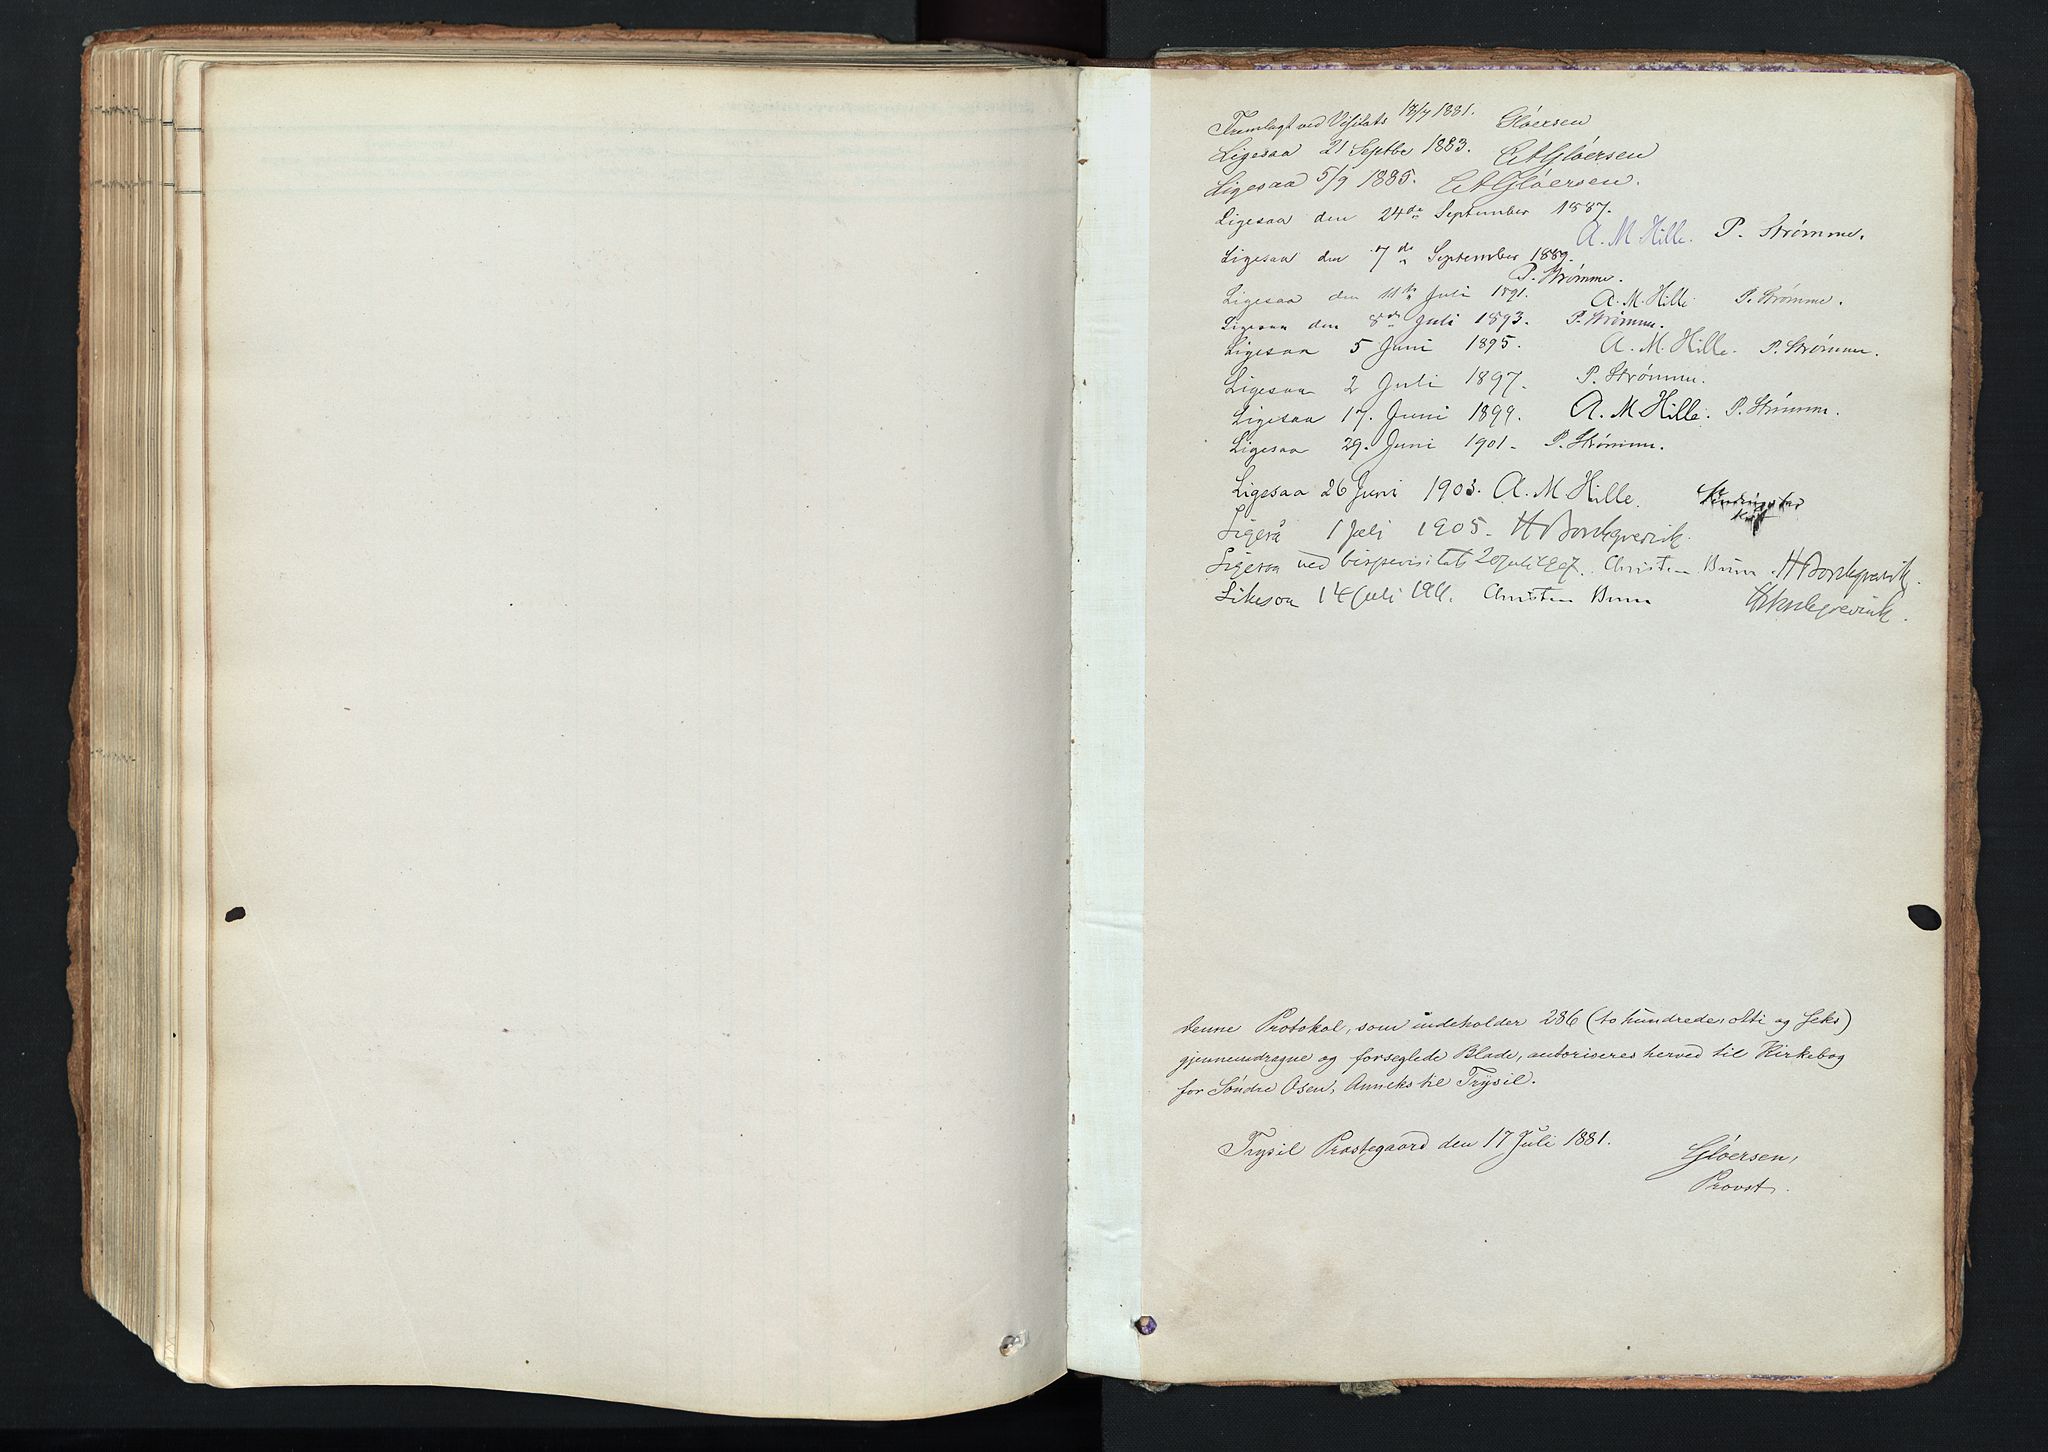 Fremlagt ved Visitats 18/7 1881. Gløersen
Ligesaa 21 Septbr 1883. CAGløersen
Ligesaa 5/9 1885. CAGløersen.
Ligesaa den 24de September 1887.
A. M. Hille. P. Strømme.
Ligesaa den 7de September 1889.
P. Strømme.
Ligesaa den 11te Juli 1891. A. M. Hille P. Strømme.
Ligesaa den 8de Juli 1893. P. Strømme.
Ligesaa 5 Juni 1895. A. M. Hille. P. Strømme.
Ligesaa 2 Juli 1897. P. Strømme.
Ligesaa 17. Juni 1899. A. M Hille. P. Strømme.
Ligesaa 29. Juni 1901. P. Strømme.
Ligesaa 26 Juni 1903. A. M Hille.
Ligeså 1 Juli 1905. H Borchgrevink.
Ligesaa ved bispevisitats 20 juli 1907. Christen Brun. H Borchgrevink.
Likesaa 14 juli 1911. Christen Brun HBorchgrevink.
Denne Protokol, som indeholder 286 (to hundrede, otti og seks)
gjennemdragne og forseglede Blade, autoriseres herved til Kirkebog
for Søndre Osen, Anneks til Trysil.
Trysil Præstegaard den 17 Juli 1881.
Gløersen,
Provst.